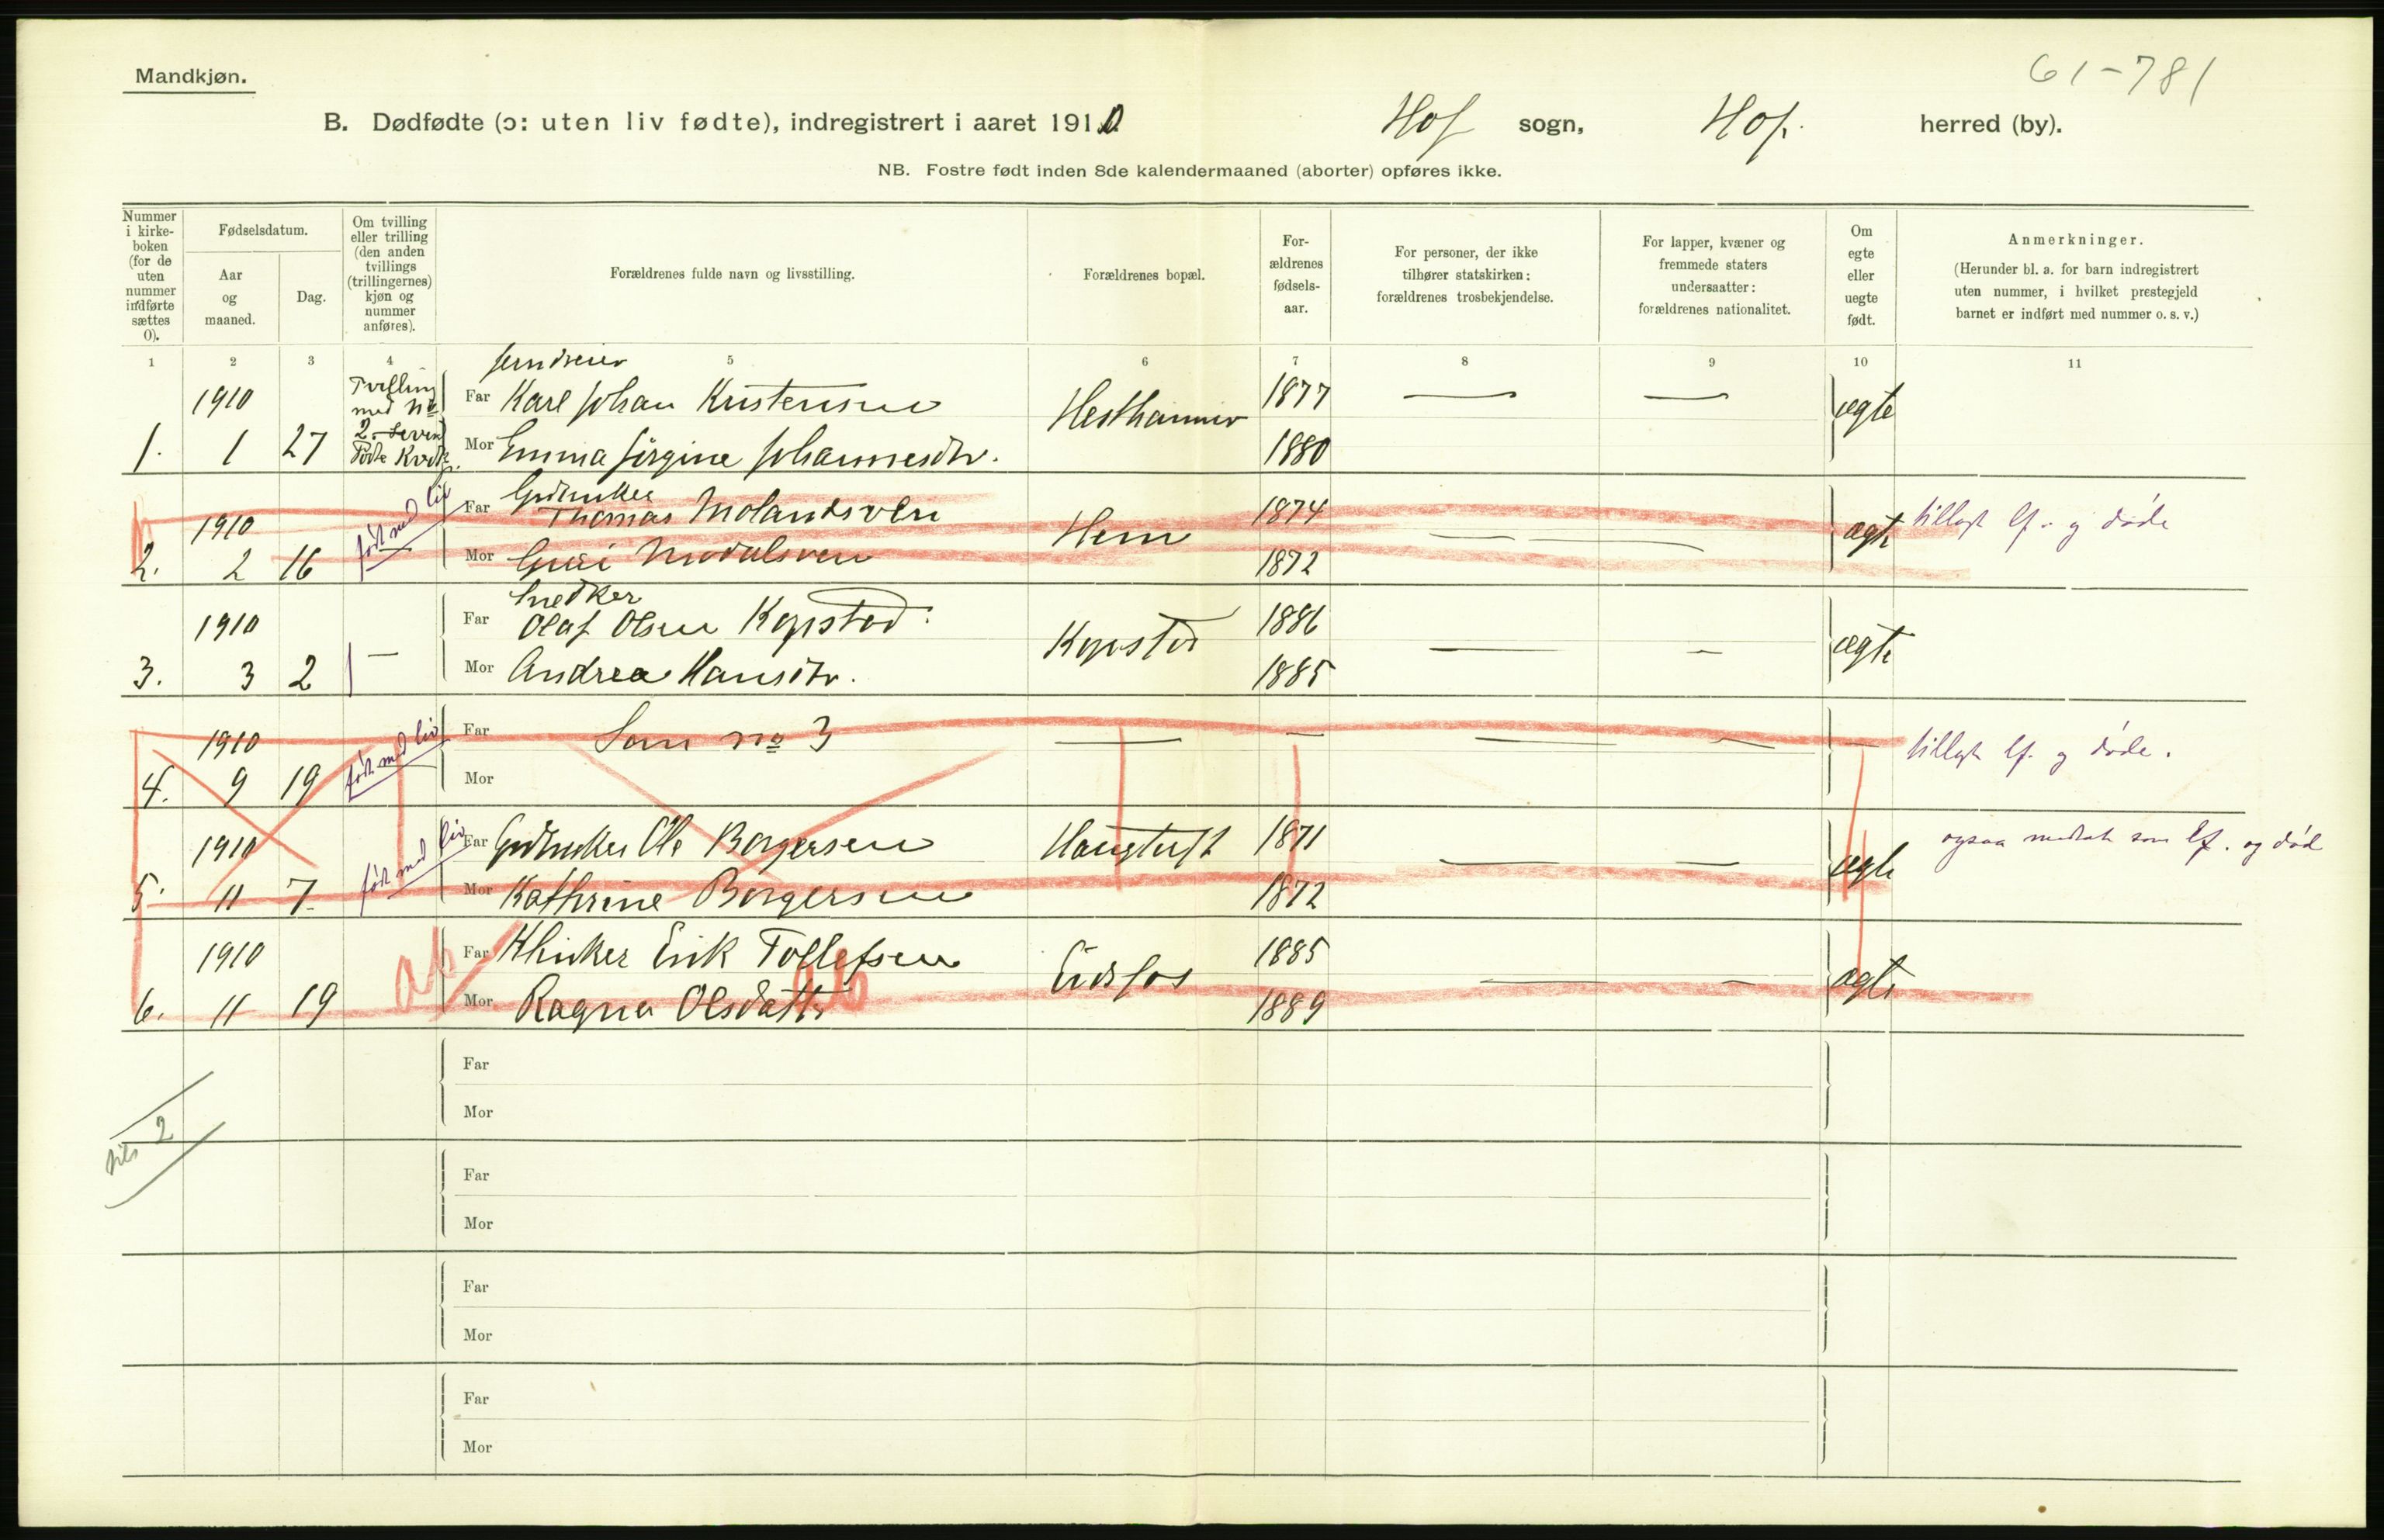 61-781
Mandkjøn.
B. Dødfødte (ɔ: uten liv fødte), indregistrert i aaret 1910 Hof sogn, Hof. herred (by).
NB. Fostre født inden 8de kalendermaaned (aborter) opføres ikke.
Nummer i kirke-boken (for de uten nummer indførte sættes 0).
Fødselsdatum.
Aar og maaned.
Dag.
Om tvilling eller trilling (den anden tvillings (trillingernes) kjøn og nummer anføres).
Forældrenes fulde navn og livsstilling.
Forældrenes bopæl.
For-ældrenes fødsels-aar.
For personer, der ikke tilhører statskirken: forældrenes trosbekjendelse.
For lapper, kvæner og fremmede staters undersaatter: forældrenes nationalitet.
Om egte eller uegte født.
Anmerkninger.
(Herunder bl. a. for barn indregistrert uten nummer, i hvilket prestegjeld barnet er indført med nummer o. s. v.)
1 2 3 4 5 6 7 8 9 10 11
1910 Tvilling med No 2
Far Karl Johan Kristensen 1877 — — ægte
1. 1 27 Mor Emma Jørgine Johannesdtr. 1880
født med liv
1910 Far Gdbruker Thomas Molandsveen Hem 1874 — — ægte tillagt lf. og døde
2. 2 16 — Mor 1872
Snedker
1910 Far Olaf Olsen Kopstad. Kopstad 1886 — — ægte
3. 3 2 — Mor Andrea Hansdtr. 1885
1910 født med liv Far Som No 3 — — — — — tillagt lf. og døde.
4. 9 19 Mor
1910 født med liv Far Gdbruker Ole Borgersen Haugtuft 1871 — — ægte ogsaa medtat som lf. og død
5. 11 7 Mor Kathrine Borgersen 1872
1910 ab Far Erik Tollefsen Eidsfos 1885 — — ægte
6. 11 19 Mor Ragna Olsdatter ab 1889
Far
Mor
2
Far
Mor
Far
Mor
Far
Mor